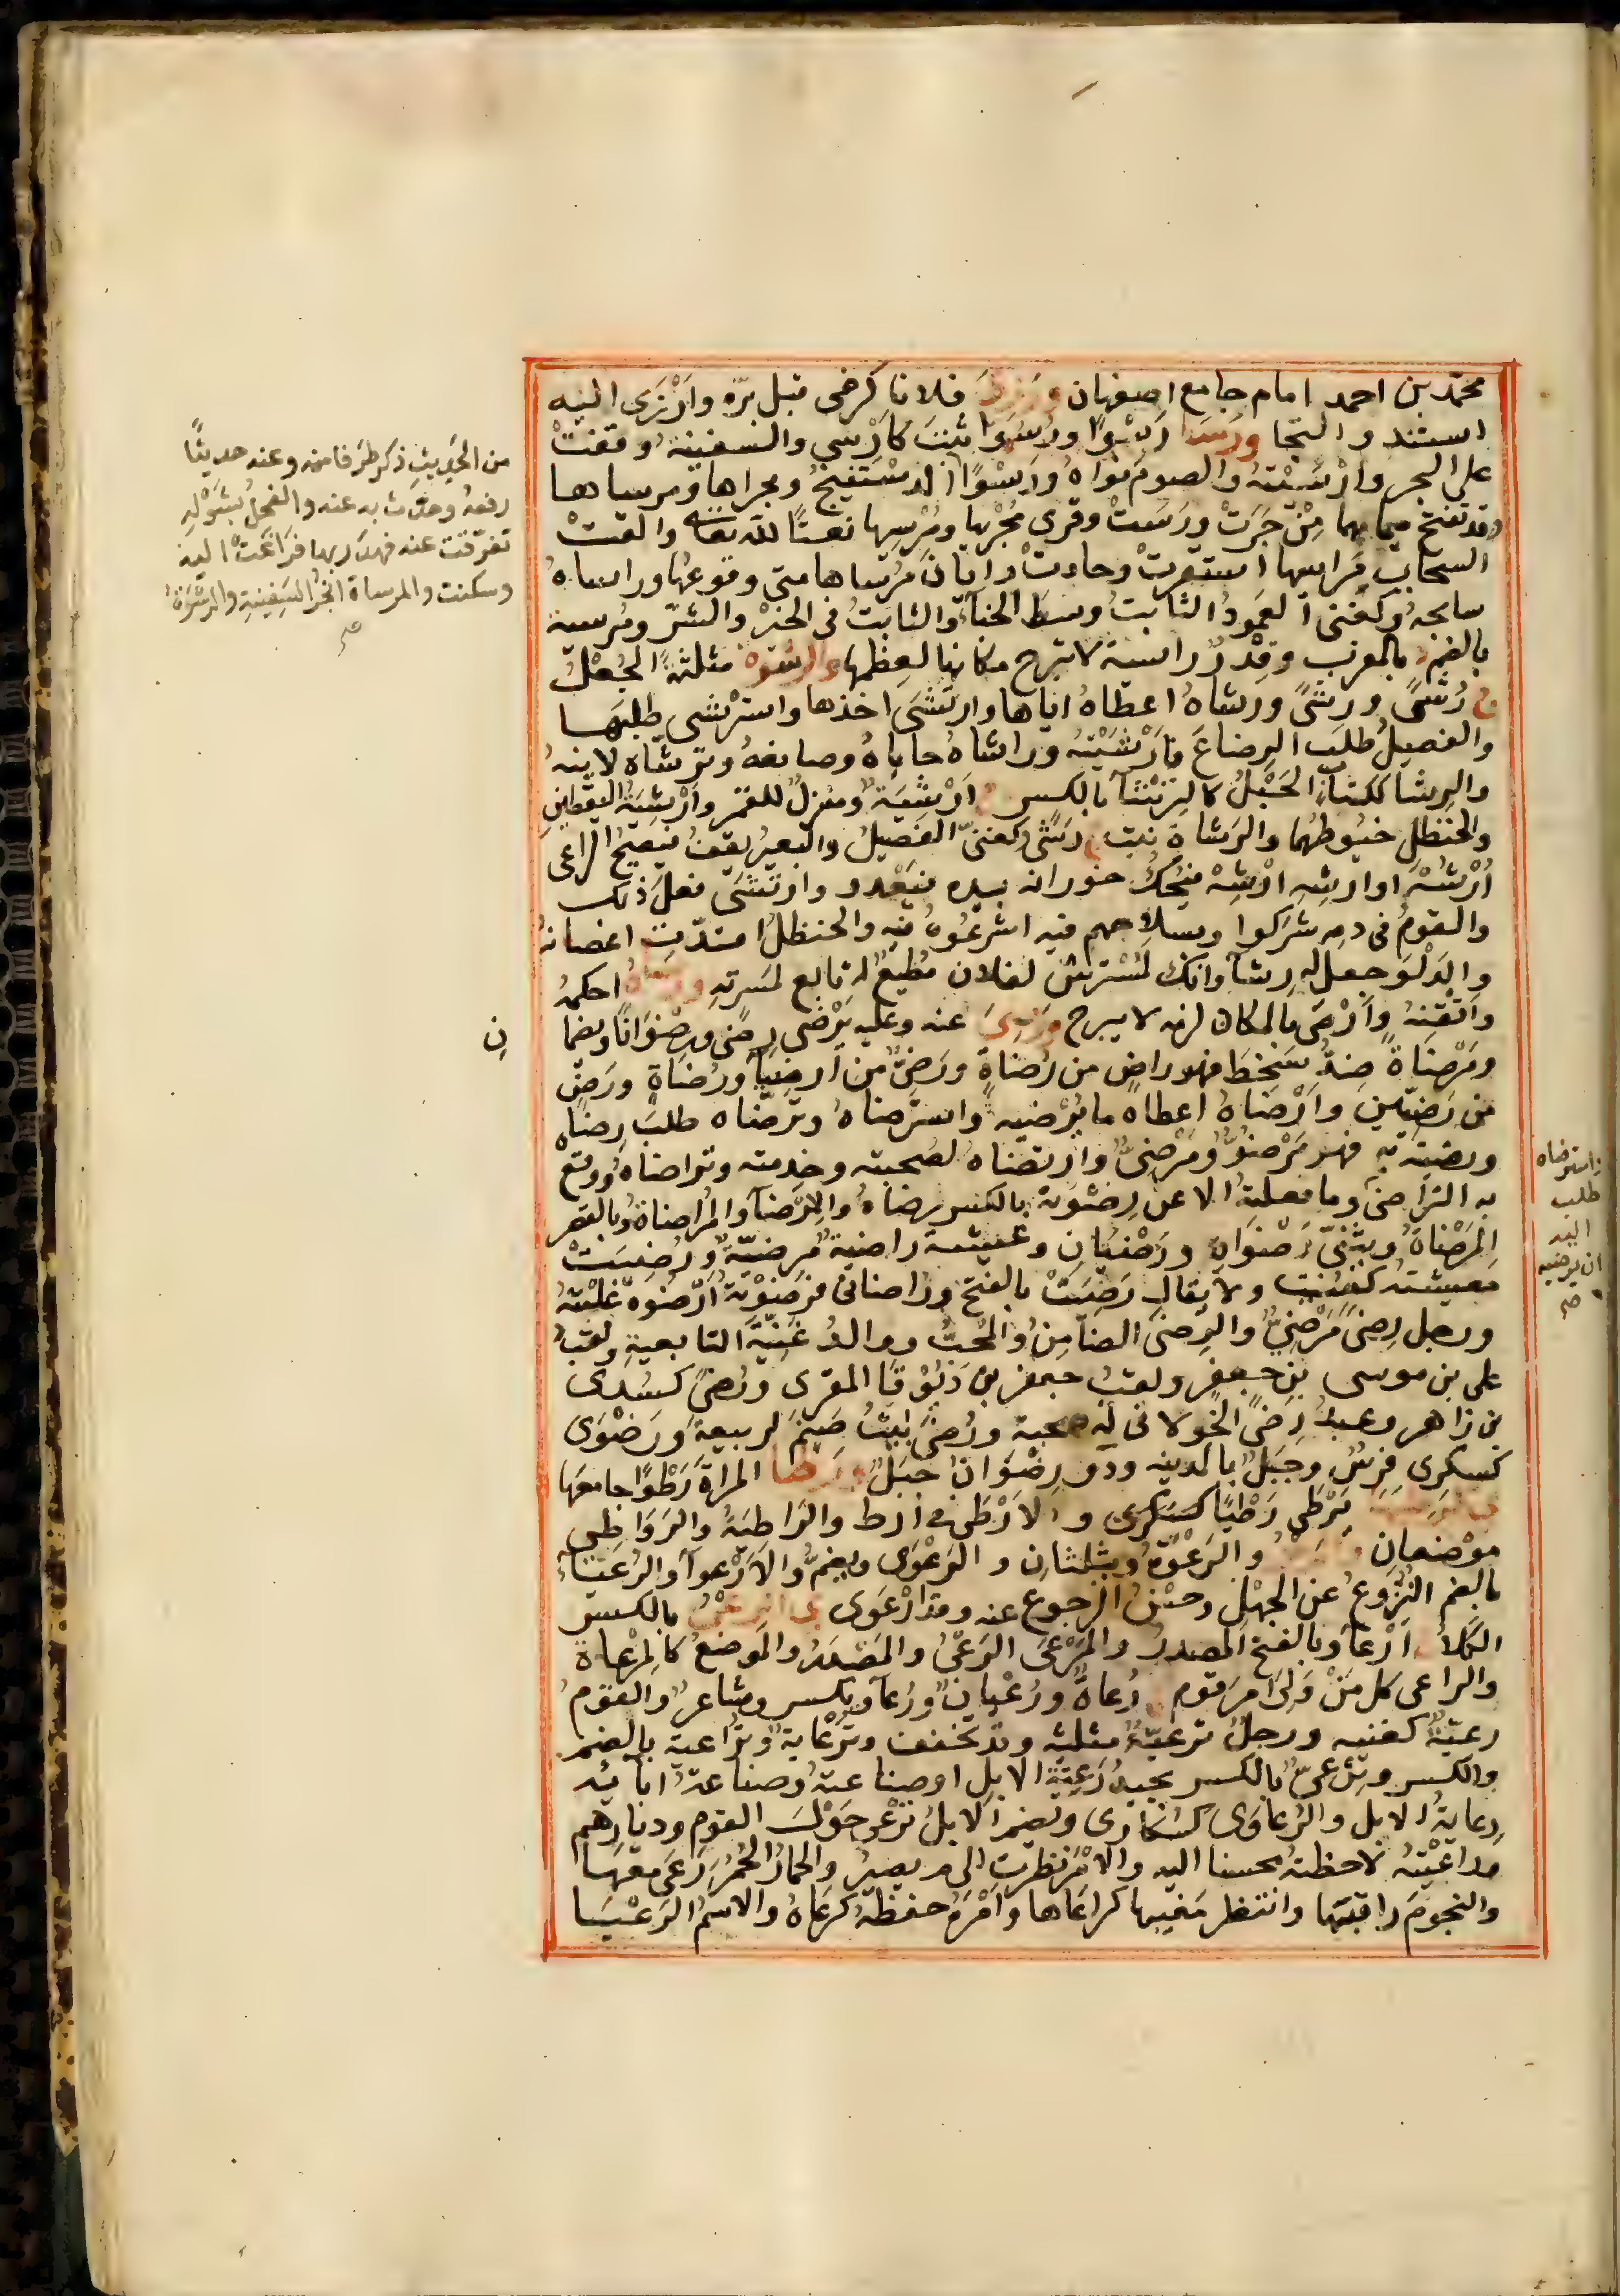 محمد بن احمد امام جامع اصفهان ورزى فلانا كرضى قبل برّه وارْزَى اليه
استند والتجا ورسا رَسْوًا ورُسُوًّا ثبت كارْسى والسفينة وقفت
على البحر وارْسَيْتُه والصوم نواهُ ورَسْوًا الدستينج ومجراها ومرساها
وقد تفتح ميماهما مِنْ جَرَتْ ورَسَتْ وقرى مُجْرِيها ومُرْسِيها نعتًا لله تعا والقت
السحاب مراسيها استقرت وجادت وايّانَ مُرْساها متى وقوعُها وراساهُ
سابحهُ وكغنى العمودُ الثابتُ وسط الخبآء والثابتُ فى الخير والشرّ ومُرسية
بالضم د بالمغرب وقِدْرٌ راسية لا تبرح مكانها لعِظَمها والرشوة مثلثةً الجُعْلُ
ج رُشىً ورِشىً ورشاهُ اعطاهُ اياها وارتشى اخذها واسترشى طلبها
والفصيلُ طلب الرضاعَ فارْشَيْتُه وراشاهُ حاباهُ وصانعهُ وترشّاه لاينهُ
والرِشا ككسآء الحَبْلُ كالترشآ بالكسر ج ارْشِيَةٌ ومنزلٌ للقمر وارْشِيَةُ اليقطين
والحنظل خيوطُهما والرَشاة نبت ج رَشًى وكغنىّ الفصيلُ والبعيرُ يقفُ فيصيحُ الراعى
ارْشُهْ ارْشُهْ او ارشِهِ ارْشِهْ فيحكّ خورانه بيده فيَعْدو وارْتَشَى فعلَ ذلك
والقومُ فى دمه شركوا وبسلاحهم فيه اشرعُوهُ فيه والحنظلُ امتدّت اغصانهُ
والدَلْوَ جعل له رِشآ وانك لمُسْترشٍ لفلان مُطيعٌ له تابع لمَسَرّتِهِ ورصاهُ احكمهُ
واتْقَنَهُ وارْصَى بالمكان لزمه لا يبرح ورَضِىَ عنه وعليه يَرْضى رِضًى ورِضْوَانًا ويضمّان
ومَرْضاةً ضدُّ سَخِطَ فهو راضٍ من رُضاةٍ ورَضِىٌّ من ارضيآ ورُضاةٍ ورَضٍ
من رَضِيّين وارْضاهُ اعطاه ما يُرْضيه واسترضاهُ وترضّاه طلبَ رِضاه
ورضيتُه به فهو مَرْضُوٌّ ومَرْضِىٌّ وارتضاه لصُحبته وخدمته وتراضياهُ ووقع
به التراضى وما فعلتُه الا عن رِضْوَتِه بالكسر رِضاهُ والرِضآ والمُراضاة وبالقصر
المَرْضاةُ ويثنّى رضْوَانِ ورَضْيَانِ وعيشة راضيةٌ مرضيّةٌ ورُضِيَتْ
معيشتُه كعُنِيت ولا يقال رَضِيَتْ بالفتح وراضانى فرضَوْتُه ارْضُوه غلبْتُه
ورجل رِضًى مَرْضِىٌّ والرِضى الضامِنُ والمُحبُّ ووالدُ غَنِيّةَ التابعية ولقبُ
على بن موسى بن جعفر ولقبُ جعفر بن دَبُّوقَا المقرى ورُضى كسُدى
بن زاهر وعبدُ رُضىً الخولانى له صحبة ورُضَى بيتُ صنم لربيعةَ ورَضْوَى
كسكرى فرسٌ وجبلٌ بالمدينة وذو رِضْوَان جَبَلٌ ورطا المراةَ رَطْوًا جامعَها
يَرْطى رَطْيًا كسَكْرى والارْطى فى ارط والرَاطيَةُ والرَوَاطِى
موضعان والرَعْوَةُ ويثلثان والرَعْوَى ويضمّ والارْعوآ والرُعْيَا
بالضم النُزُوعُ عن الجهل وحسْنُ الرجوع عنه وقد ارْعَوى ى الرعْى بالكسر
الكلأ ج ارْعا وبالفتح المصدرُ والمَرْعَى الرَعْىُ والمَصْدَرُ والموضعُ كالمِرْعاة
والراعى كل مَنْ وَلِىَ امرَ قوم ج رُعاةٌ ورُعْيان ورُعآ ويكسر وشاعرٌ والقومُ
رعيّةٌ كغنية ورجلٌ ترعيّة مثلثه وقد تخفف وترْعاية وتراعية بالضم
والكسر وتِرْعىٌّ بالكسر يجيدُ رَعِيّةَ الابل او صناعتهُ وصناعةُ ابائه
رِعايةُ الابل والرُعاوَى كسُكارى ويضم الابلُ ترْعو حَوْلَ القوم وديارهم
وراعَيْتُه لاحظتُه محسنا اليه والامْرَ نظرت الى م يصيرُ والحمارُ الحُمُرَ رَعَى معها
والنجومَ راقبَتها وانتظر مَغيبها كراعاها وامْرَهُ حفظهُ كرعاهُ والاسمُ الرَعْيَا
من الحديث ذكر طرفا منه وعنه حديثًا
رفعه وحدّث به عنه والفحلُ بشَوْله
تفرّقت عنه فهدَرَ بها فراغتْ اليه
وسكنت والمرساة انجر السَفينة والرشْوَةُ
صح
ن
واسترضاه
طلب
اليه
ان يرضيه
صح